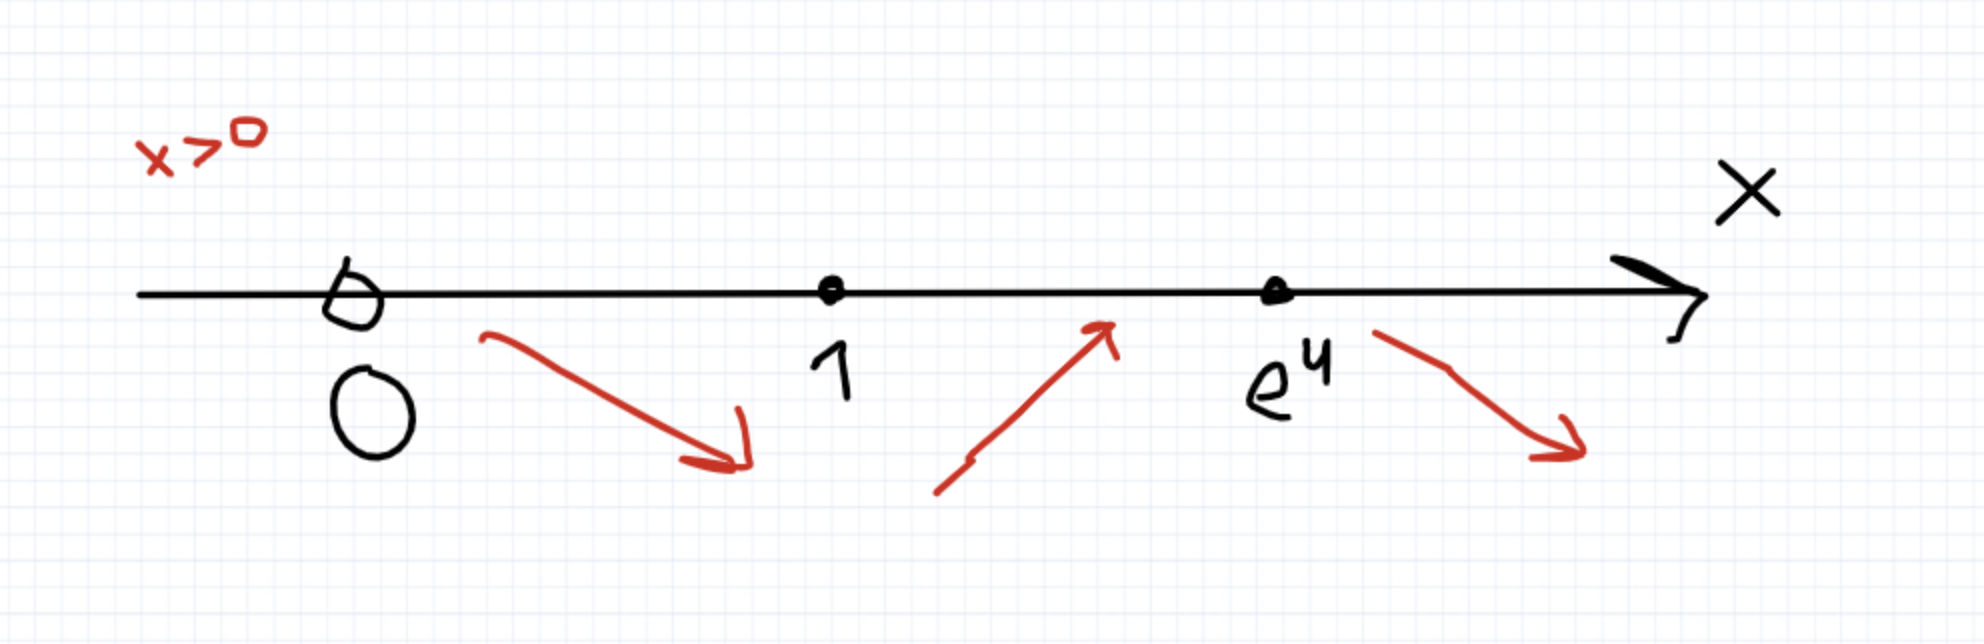 x > 0
x
0 1 e⁴